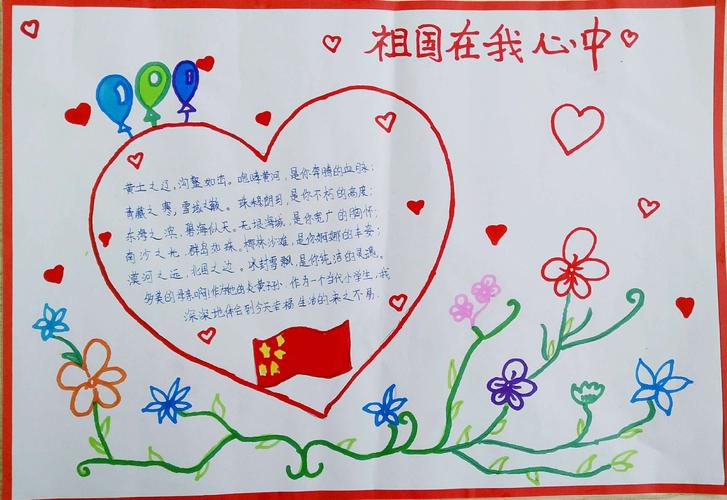 祖国在我心中
黄土之辽,沟壑如击。咆哮黄河,是你奔腾的血脉;
青藏之寒,雪域之巅。珠穆朗玛,是你不朽的高度;
东海之滨,碧海似天。无垠海域,是你宽广的胸怀;
南沙之地,群岛如珠。椰林沙滩,是你婀娜的丰姿;
漠河之远,北国之边。冰封雪飘,是你纯洁的灵魂。
多美的母亲啊!作为她的炎黄子孙,作为一个当代小学生,我
深深地体会到今天幸福生活的来之不易.